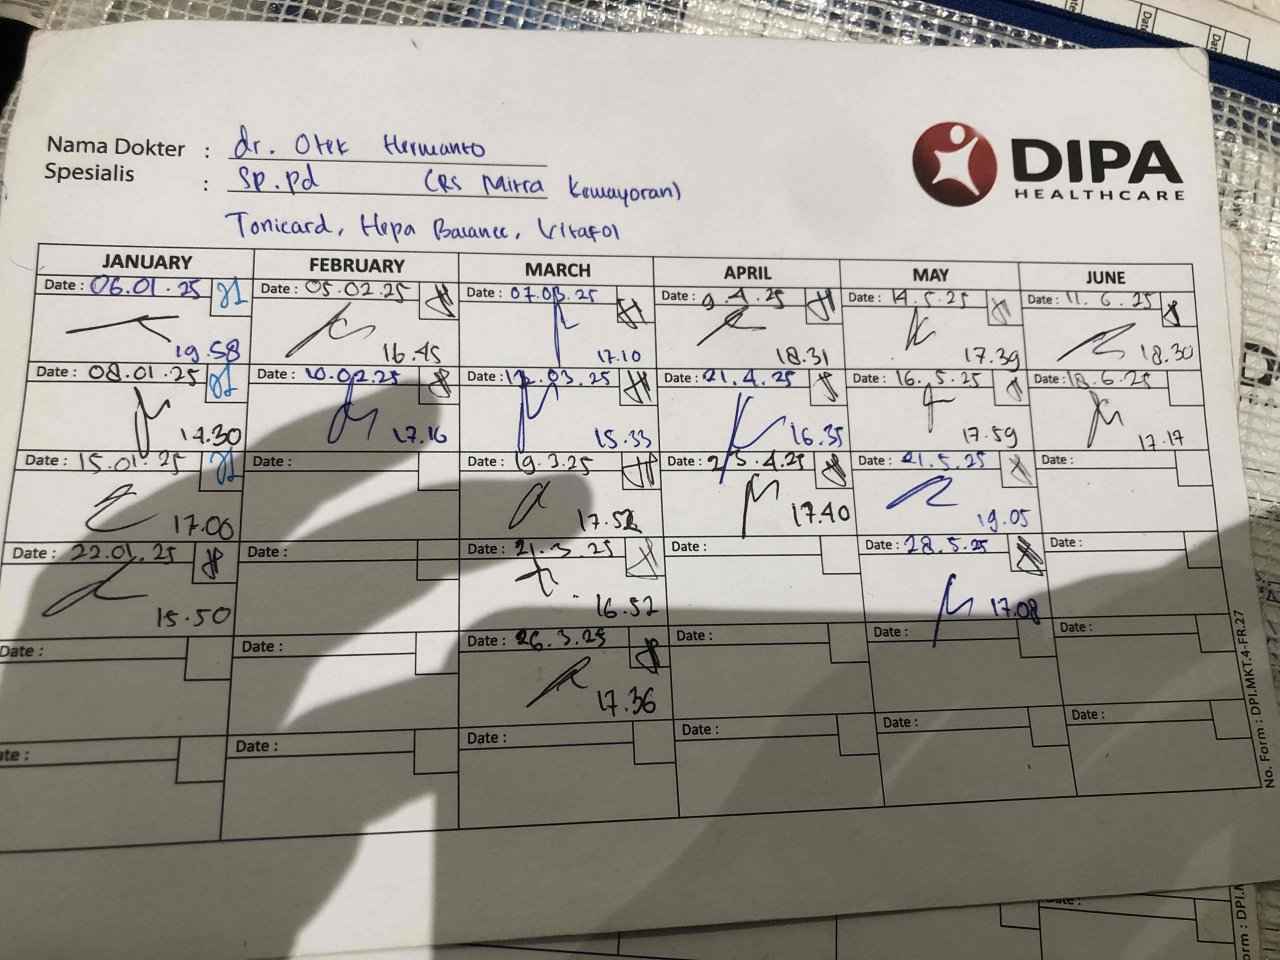 Nama Dokter : dr. Otek Hermanto
Spesialis : Sp.pd (RS Mitra Kemayoran)
Tonicard, Hepa Balance, Vitafol
DIPA
HEALTHCARE
JANUARY FEBRUARY MARCH APRIL MAY JUNE
Date : 06.01.25 Date : 05.02.25 Date : 07.03.25 Date : 9.4.25 Date : 14.5.25 Date : 11.6.25
19.58 16.45 17.10 18.31 17.39 18.30
Date : 08.01.25 Date : 10.02.25 Date : 12.03.25 Date : 21.4.25 Date : 16.5.25 Date : 18.6.25
14.30 17.16 15.33 16.35 17.59 17.17
Date : 15.01.25 Date : Date : 19.3.25 Date : 23.4.25 Date : 21.5.25 Date :
17.00 17.52 17.40 19.05
Date : 22.01.25 Date : Date : 21.3.25 Date : Date : 28.5.25 Date :
15.50 16.52 17.08
Date : Date : Date : 26.3.25 Date : Date : Date :
17.36
Date : Date : Date : Date : Date : Date :
No. Form : DPI.MKT.4-FR.27